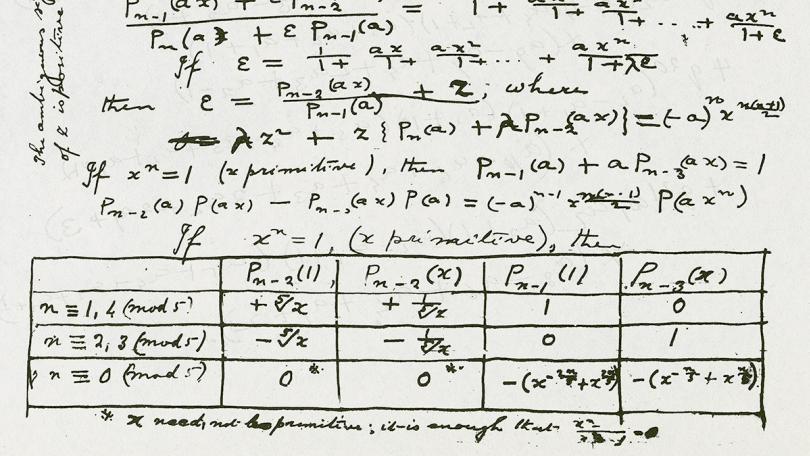 The ambiguous
of x is positive
P_{n-1}(ax) + ε P_{n-2} / P_n(a) + ε P_{n-1}(a) = 1/1+ ax/1+ ax²/1+ ··· + ax^n/1+ε
If ε = 1/1+ ax/1+ ax²/1+ ··· + ax^n/1+λε
then ε = P_{n-2}(ax)/P_{n-1}(a) + z; where
λz² + z{P_n(a) + λP_{n-2}(ax)} = (-a)^n x^{n(n+1)/2}
If x^n=1 (x primitive), then P_{n-1}(a) + a P_{n-3}(ax) = 1
P_{n-2}(a) P(ax) - P_{n-3}(ax) P(a) = (-a)^{n-1} x^{n(n-1)/2} P(ax^n)
If x^n = 1, (x primitive), then
P_{n-2}(1), P_{n-2}(x) P_{n-1}(1) P_{n-3}(x)
n ≡ 1, 4 (mod 5) + ⁵√x + 1/⁵√x 1 0
n ≡ 2, 3 (mod 5) - ⁵√x - 1/⁵√x 0 1
n ≡ 0 (mod 5) 0* 0* -(x^{-2n/5}+x^{2n/5}) -(x^{-n/5}+x^{n/5})
* x need not be primitive; it is enough that = 0